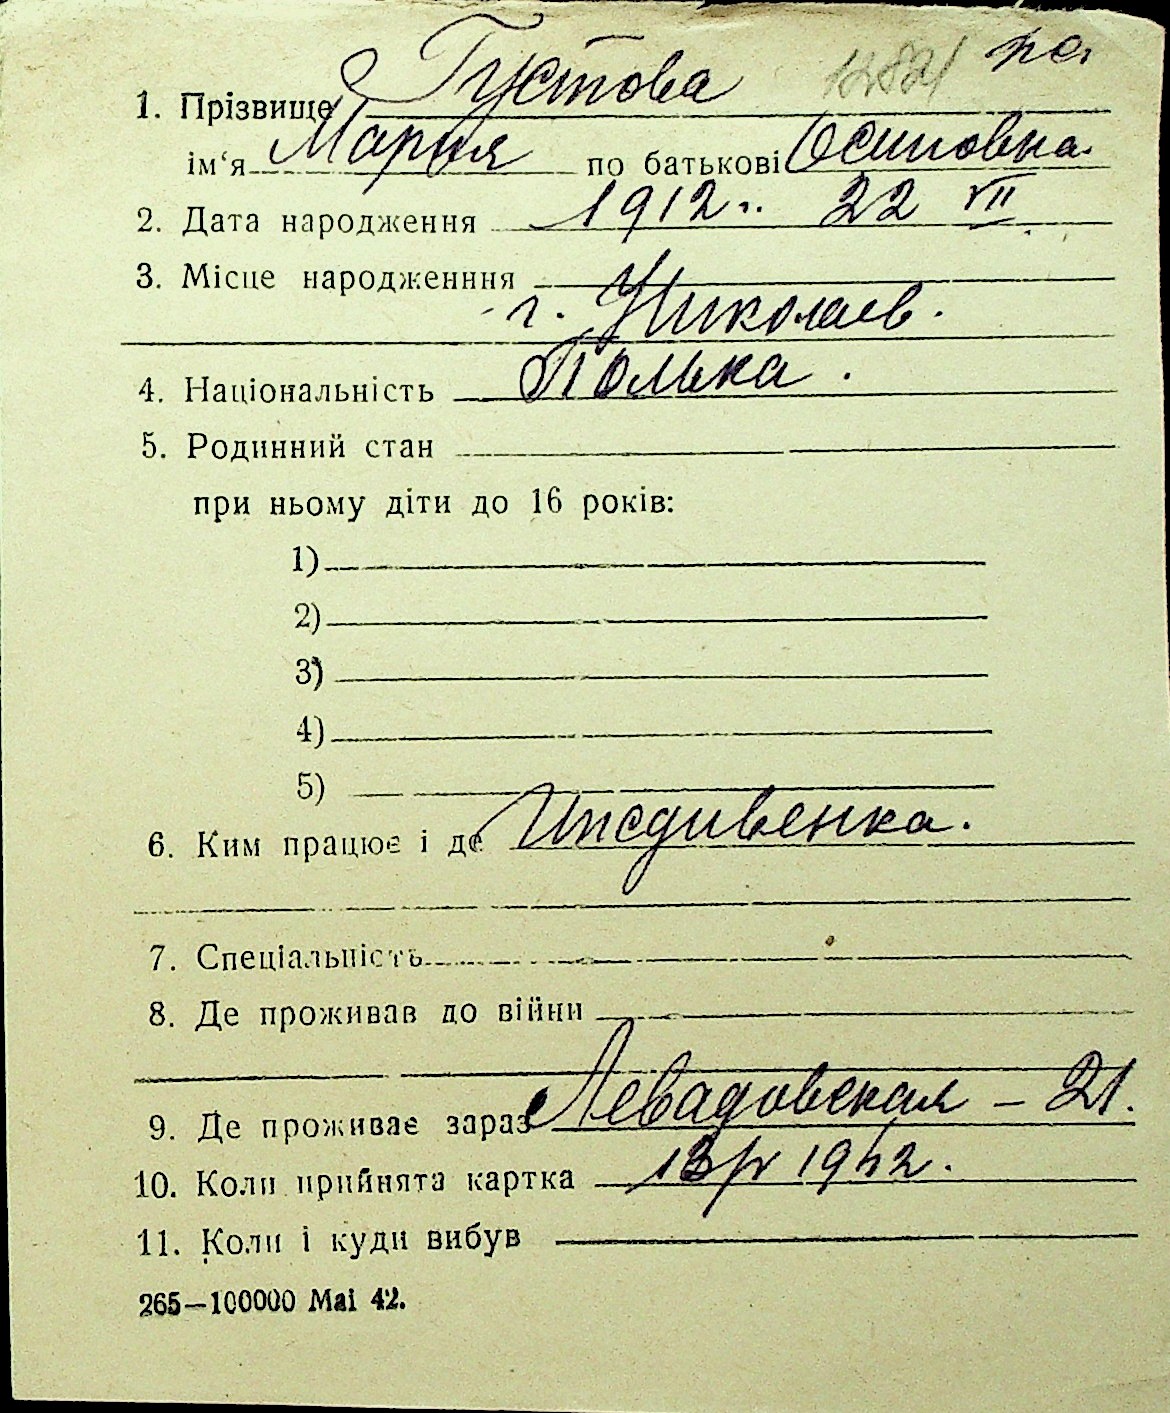 1. Прізвище Густова
ім‘я Мария по батькові Осиповна.
2. Дата народження 1912 г. 22 VII
3. Місце народженння
г. Николаев.
4. Національність Полька.
5. Родинний стан
при ньому діти до 16 років:
1)
2)
3)
4)
5)
6. Ким працює і де Иждивенка.
7. Спеціальність
8. Де проживав до війни
9. Де проживає зараз Левадовская - 21.
10. Коли прийнята картка 1942.
11. Коли і куди вибув
265—100000 Mai 42.